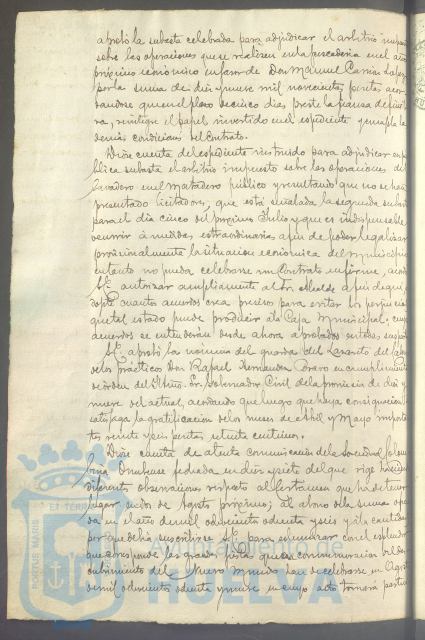 aprobó la subasta celebrada para adjudicar el arbitrio impues
sobre las operaciones que se realizen en la pescadería en el año
próximo económico en favor de Don Manuel
por la suma de diez y nueve mil novecientas pesetas acor
dandose que en el plazo de cinco dias preste la fianza definiti
va, reintegre el papel invertido en el espediente y cumpla las
demás condiciones del contrato.
Dióse cuenta del espediente instruido para adjudicar en pú
blica subasta el arbitrio impuesto sobre las operaciones del
Lavadero en el Matadero público y resultando que no se han
presentado licitadores, que está señalada la segunda subasta
para el dia cinco del próximo Julio y que es indispensable
recurrir á medidas estraordinarias á fin de poder legalizar
provisionalmente la situacion económica del Municipio
entanto no pueda celebrarse un Contrato en firme, acordó
S.E. autorizar ampliamente al Sr. Alcalde á fin de que
adopte cuanto acuerdos crea precisos para evitar los perjuicios
que tal estado puede producir á la Caja Municipal, cuyos
acuerdos se entenderán desde ahora aprobados en todas sus partes
S.E. aprobó la nómina del guarda del Lazareto y del
de los prácticos Don Rafael Fernandez Bravo en cumplimiento
de órden del Iltmo. Sr. Gobernador Civil de la provincia de diez y
nueve del actual, acordando que luego que haya consignacion se
satisfaga la gratificacion de los meses de Abril y Mayo importan
tes veinte y seis pesetas setenta centimos.
Dióse cuenta de atenta comunicacion de la Sociedad Colom
bina Onubense fechada en diez y siete del que rige haciendo
diferentes observaciones respecto al Certamen que ha de tener
lugar en dos de Agosto próximo; al abono de la suma
da en el año de mil ochocientos ochenta y seis y á la cantidad
por que debia suscribirse S.E. para
que corresponde las grandes fiestas que en conmemoracion del des
cubrimiento del Nuevo Mundo han de celebrarse en Agosto
de mil ochocientos ochenta y nueve en cuyo acto tomará parte
PORTUS MARIS
ET TERRAE
HUELVA